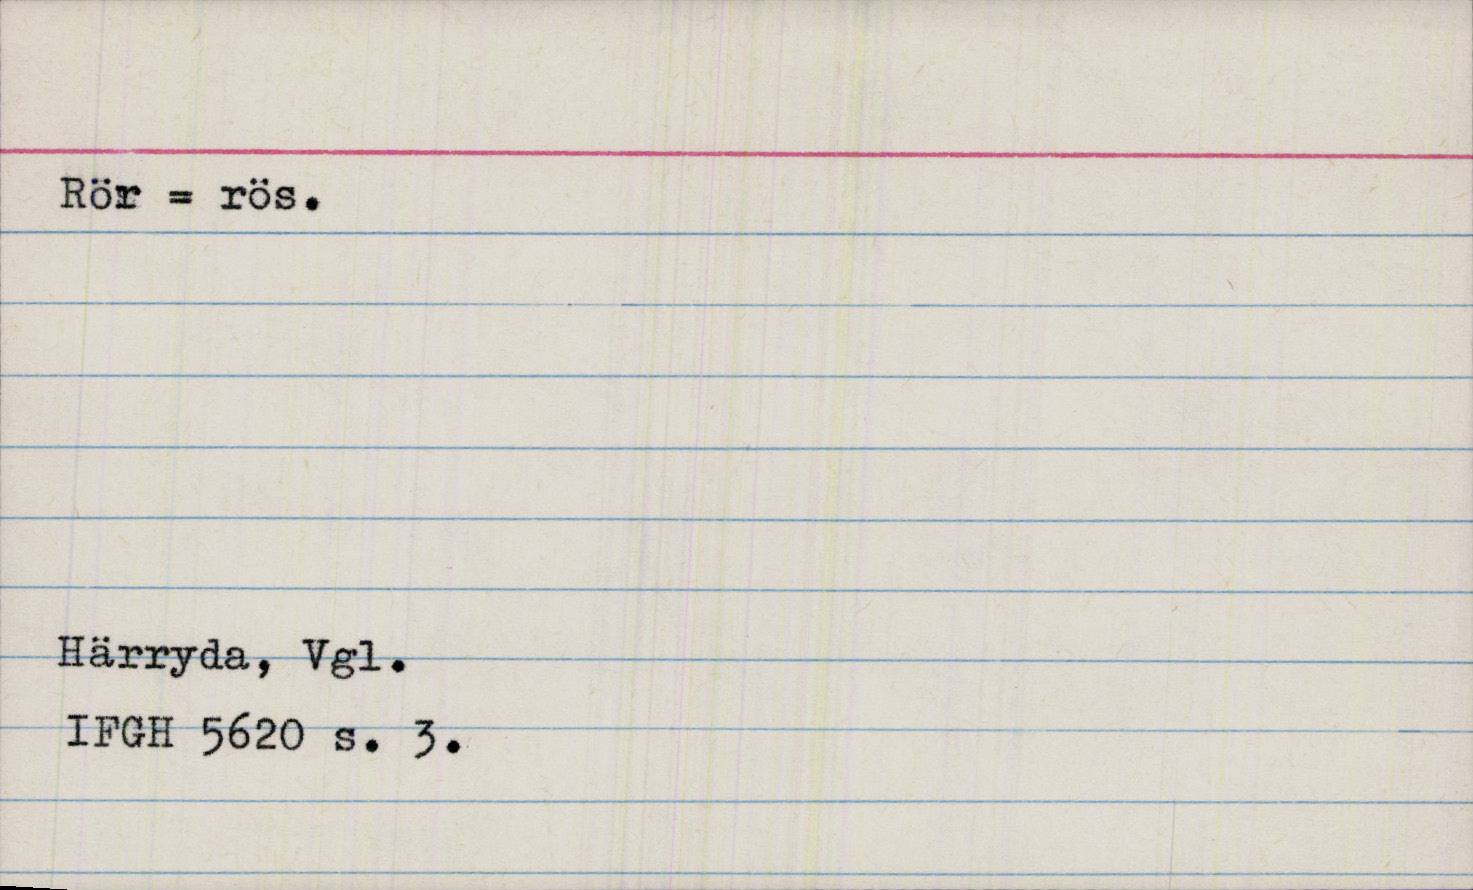 Rör = rös.
Härryda, Vgl.
IFGH 5620 s. 3.